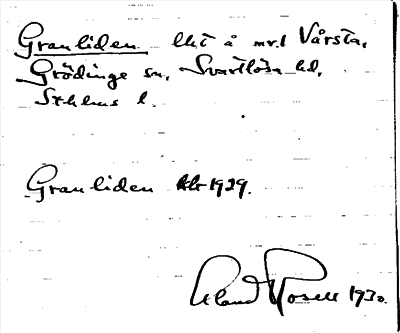 Granliden lht å nr.1 Vårsta,
Grödinge sn, Svartlösa hd,
Sthlms l.
Granliden kb 1929.
Roland Rosell 1930.